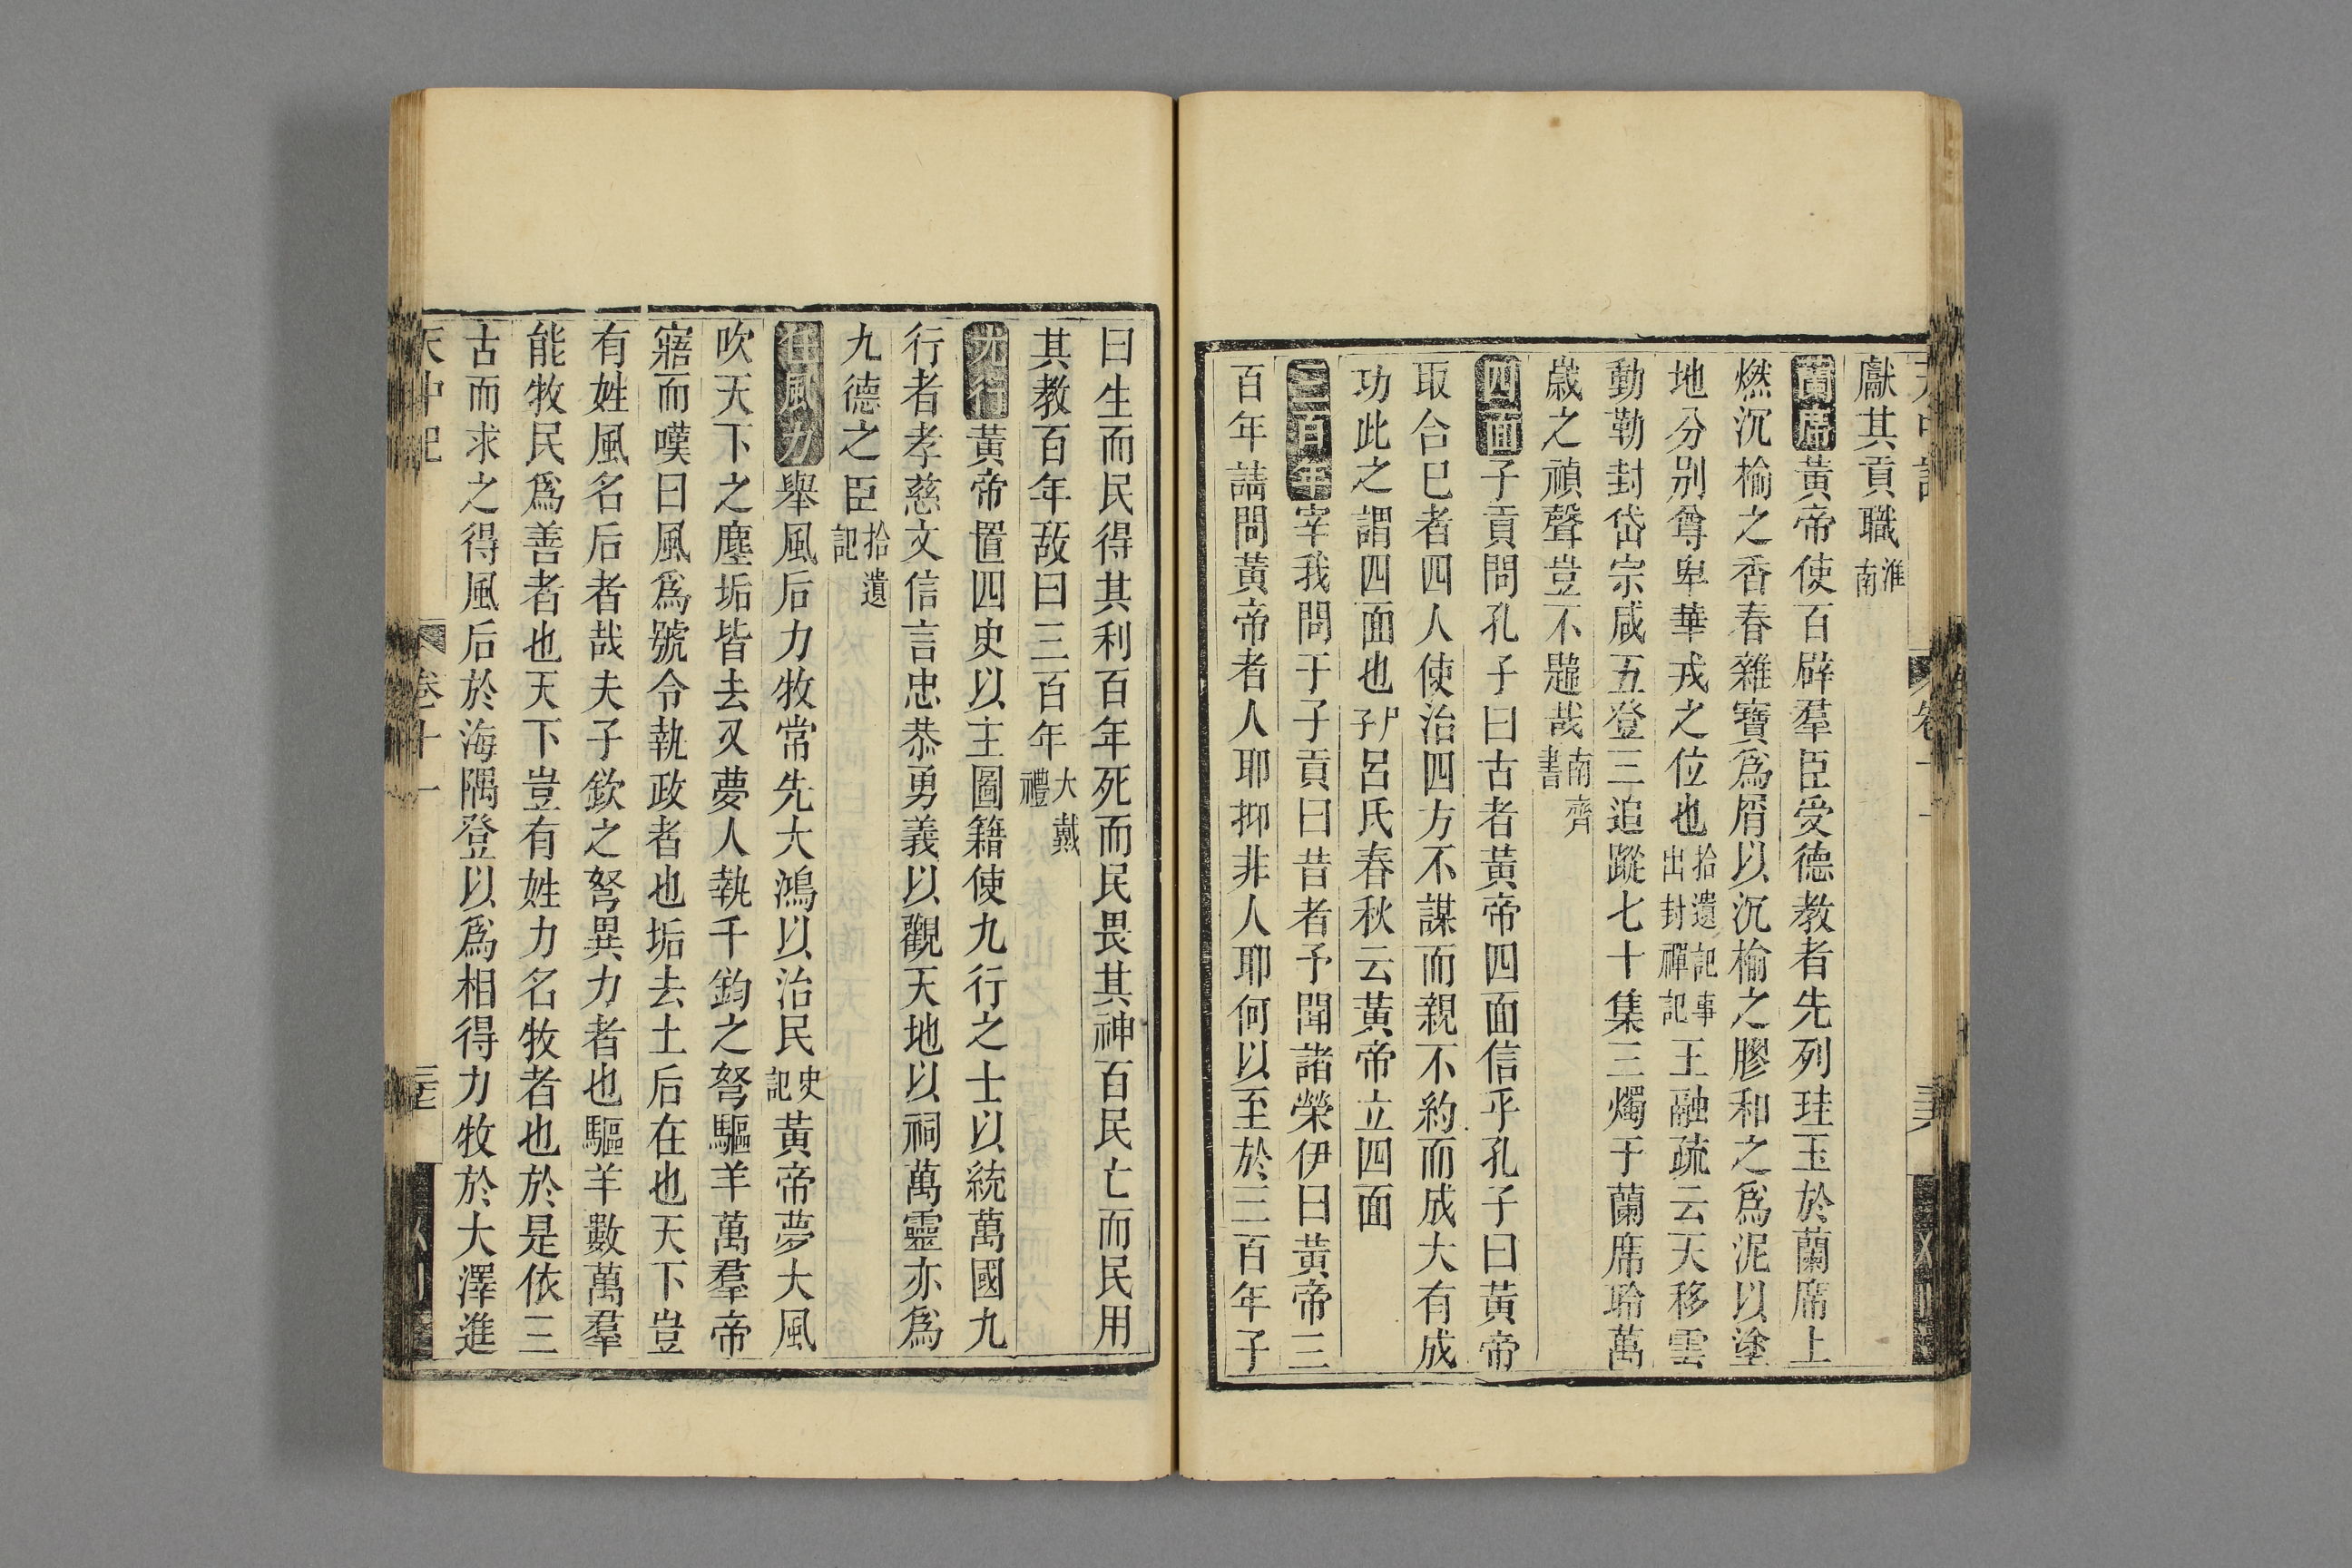 獻其貢職淮南
蘭席黃帝使百辟羣臣受德教者先列珪玉於蘭席上
燃沉榆之香舂雜寶爲屑以沉榆之膠和之爲泥以塗
地分別尊卑華戎之位也拾遺記事出封禪記王融疏云天移雲
動勒封岱宗咸五登三追蹤七十集三燭于蘭席聆萬
歲之禎聲豈不韙哉南齊書
四面子貢問孔子曰古者黃帝四面信乎孔子曰黃帝
取合巳者四人使治四方不謀而親不約而成大有成
功此之謂四面也尸子呂氏春秋云黃帝立四面
三百年宰我問于子貢曰昔者予聞諸榮伊曰黃帝三
百年詰問黃帝者人耶抑非人耶何以至於三百年子
曰生而民得其利百年死而民畏其神百民亡而民用
其教百年故曰三百年大戴禮
九行黃帝置四史以主圖籍使九行之士以統萬國九
行者孝慈文信言忠恭勇義以觀天地以祠萬靈亦爲
九德之臣拾遺記
任風力舉風后力牧常先大鴻以治民史記黃帝夢大風
吹天下之塵垢皆去又夢人執千鈞之弩驅羊萬羣帝
寤而嘆曰風爲號令執政者也垢去土后在也天下豈
有姓風名后者哉夫子欽之弩異力者也驅羊數萬羣
能牧民爲善者也天下豈有姓力名牧者也於是依三
古而求之得風后於海隅登以爲相得力牧於大澤進
天中記 卷十一